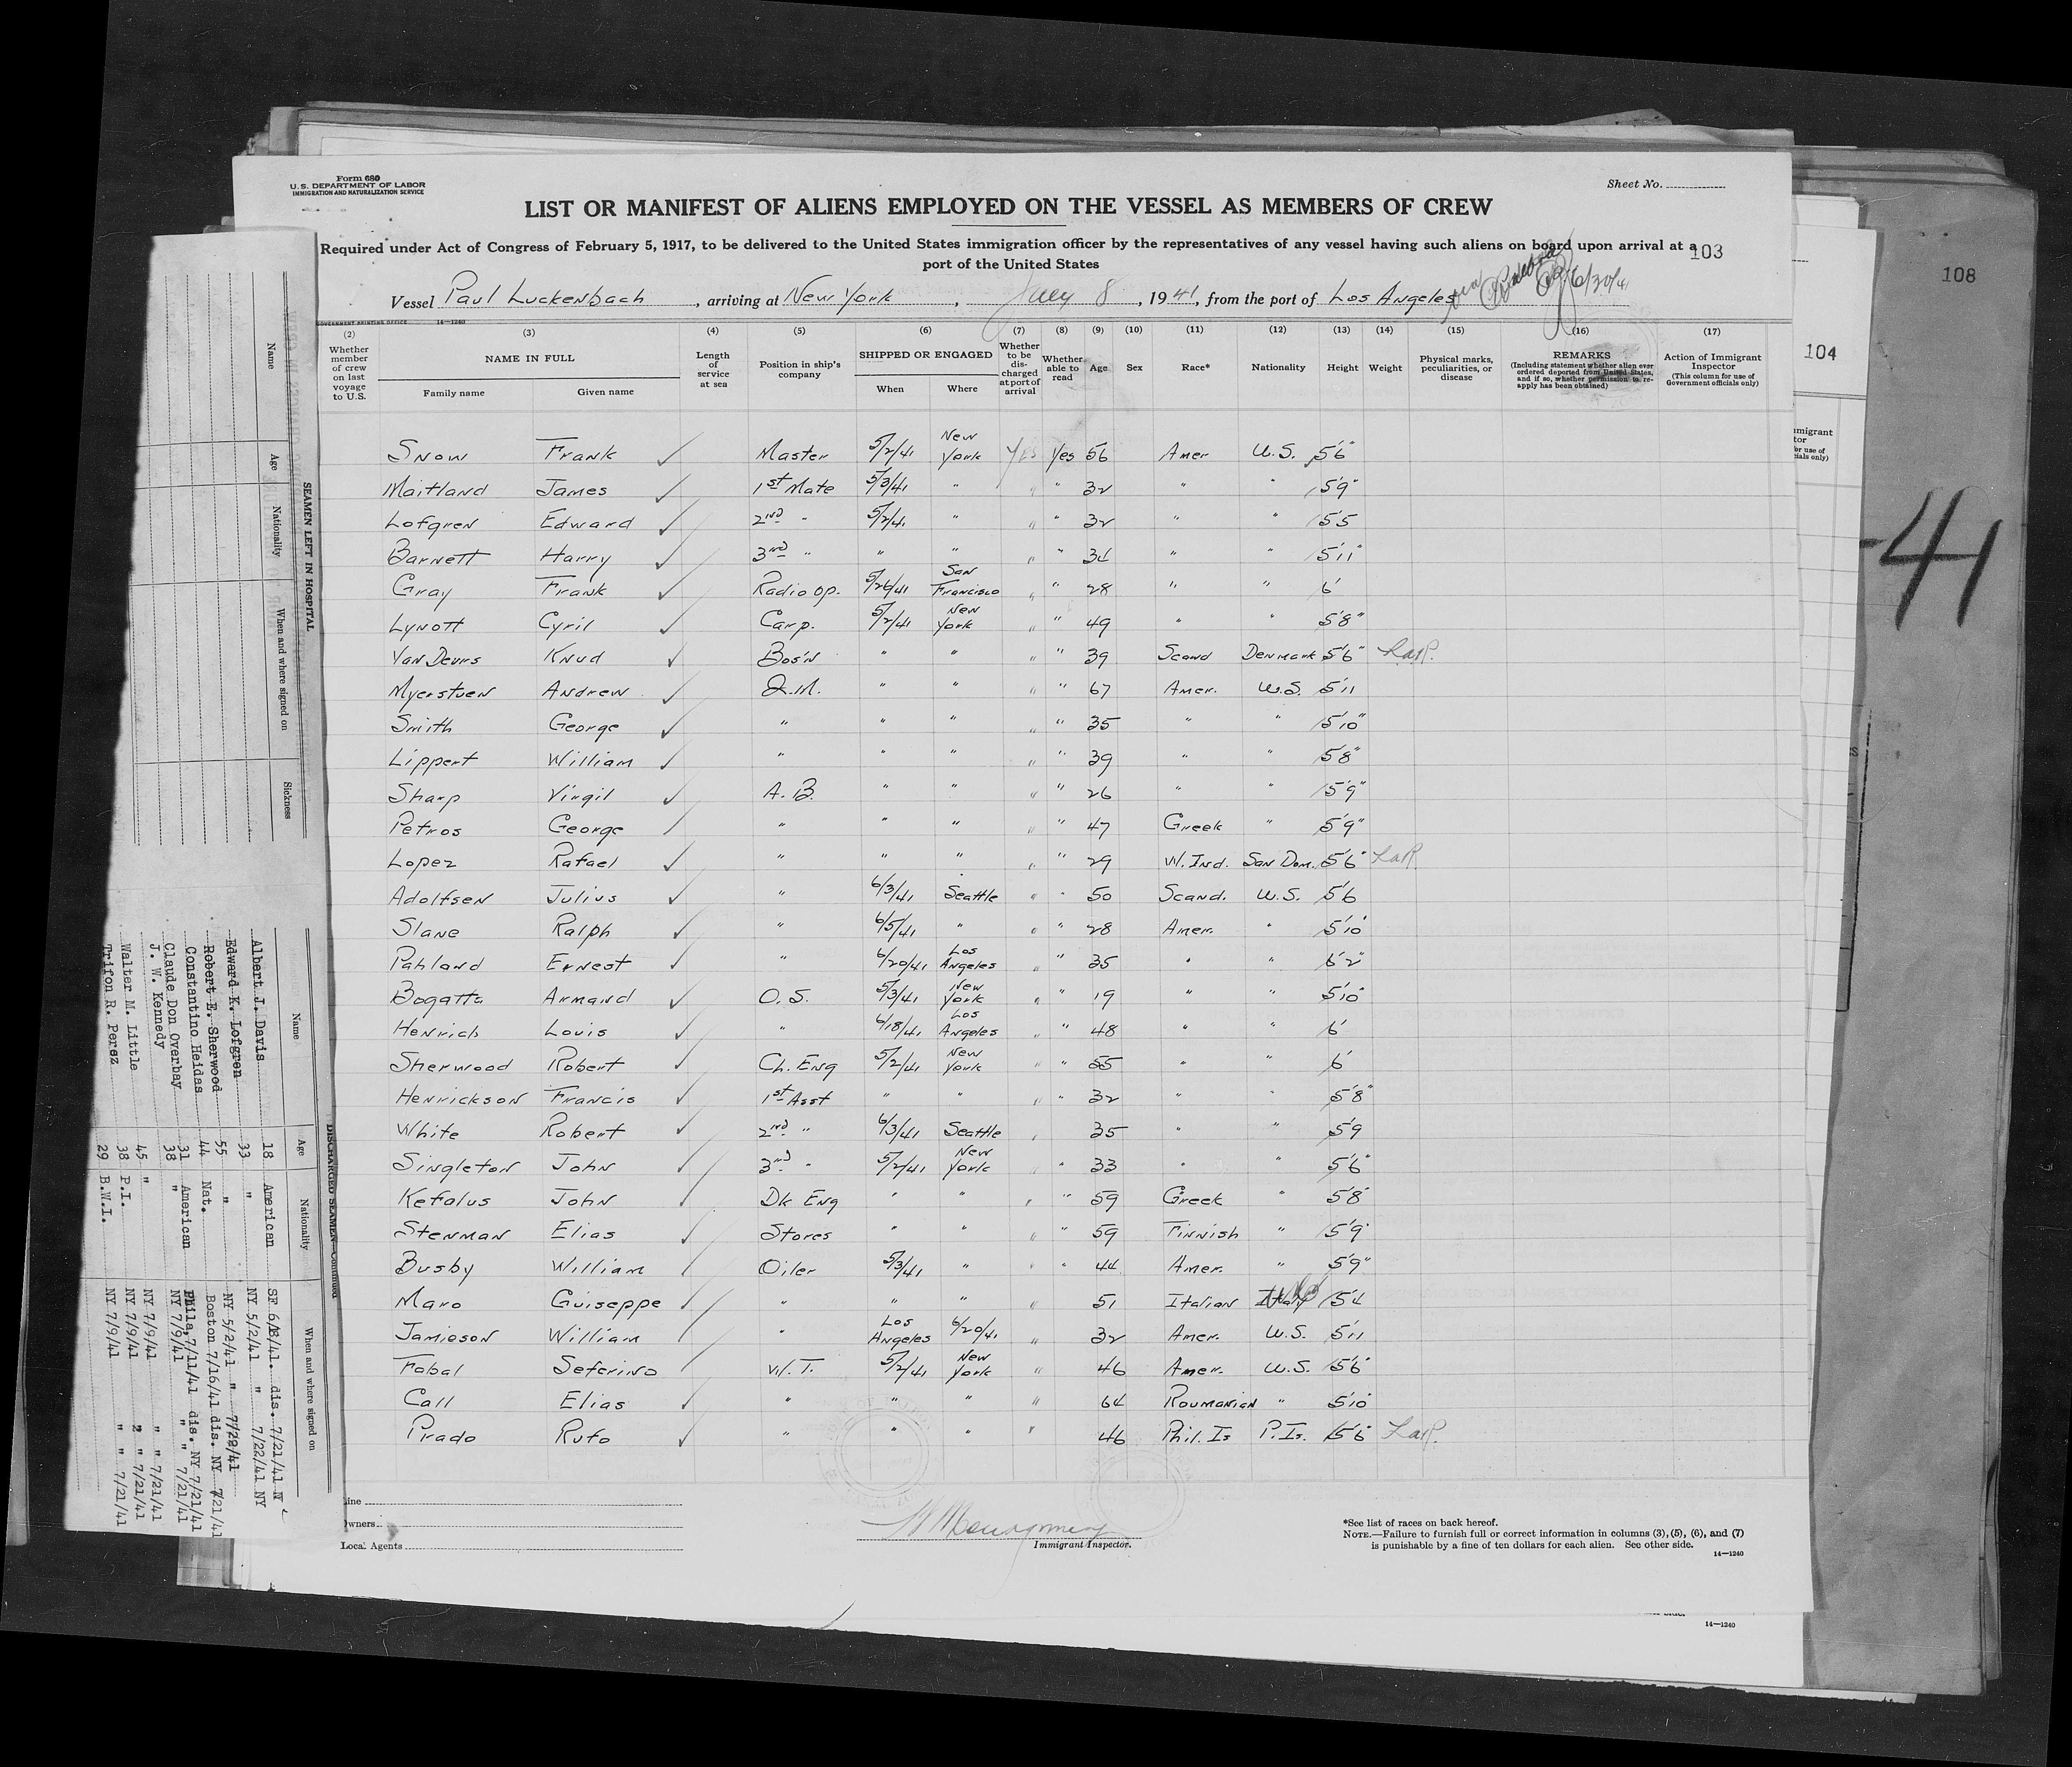 Form 680
U.S. DEPARTMENT OF LABOR
IMMIGRATION AND NATURALIZATION SERVICE
Sheet No.
LIST OR MANIFEST OF ALIENS EMPLOYED ON THE VESSEL AS MEMBERS OF CREW
Required under Act of Congress of February 5, 1917, to be delivered to the United States immigration officer by the representatives of any vessel having such aliens on board upon arrival at a
port of the United States
103
Vessel Paul Luckenbach, arriving at New York, July 8, 1941, from the port of Los Angeles
6/30/41
GOVERNMENT PRINTING OFFICE 14—1240
(2) (3) (4) (5) (6) (7) (8) (9) (10) (11) (12) (13) (14) (15) (16) (17)
Whether member of crew on last voyage to U.S.
NAME IN FULL
Family name Given name
Length of service at sea
Position in ship's company
SHIPPED OR ENGAGED
When Where
Whether to be discharged at port of arrival
Whether able to read
Age Sex Race* Nationality Height Weight
Physical marks, peculiarities, or disease
REMARKS
(Including statement whether alien ever ordered deported from United States, and if so, whether permission to reapply has been obtained)
Action of Immigrant Inspector
(This column for use of Government officials only)
Snow Frank ✓ Master 5/2/41 New York Yes Yes 56 Amer U.S. 5'6"
Maitland James ✓ 1st Mate 5/3/41 " " " 32 " " 5'9"
Lofgren Edward ✓ 2nd " 5/2/41 " " " 32 " " 5'5
Barnett Harry ✓ 3rd " " " " " 34 " " 5'11"
Gray Frank ✓ Radio Op. 5/26/41 San Francisco " " 28 " " 6'
Lynott Cyril ✓ Carp. 5/2/41 New York " " 49 " " 5'8"
Van Deurs Knud ✓ Bos'n " " " " 39 Scand Denmark 5'6"
Myerstuen Andrew ✓ Q.M. " " " " 67 Amer. U.S. 5'11
Smith George ✓ " " " " " 35 " " 5'10"
Lippert William ✓ " " " " " 39 " " 5'8"
Sharp Virgil ✓ A.B. " " " " 26 " " 5'9"
Petros George ✓ " " " " " 47 Greek " 5'9"
Lopez Rafael ✓ " " " " " 29 W. Ind. San Dom. 5'6"
Adolfsen Julius ✓ " 6/3/41 Seattle " " 50 Scand. U.S. 5'6
Slane Ralph ✓ " 6/5/41 " " " 28 Amer. " 5'10"
Pahland Ernest ✓ " 6/20/41 Los Angeles " " 35 " " 6'2"
Bogatta Armand ✓ O.S. 5/3/41 New York " " 19 " " 5'10"
Henrich Louis ✓ " 6/18/41 Los Angeles " " 48 " " 6'
Sherwood Robert ✓ Ch. Eng 5/2/41 New York " " 55 " " 6'
Henrickson Francis ✓ 1st Asst " " " " 32 " " 5'8"
White Robert ✓ 2nd " 6/3/41 Seattle " 35 " " 5'9
Singleton John ✓ 3rd " 5/2/41 New York " " 33 " " 5'6"
Kefalus John ✓ Dk Eng " " " " 59 Greek " 5'8"
Stenman Elias ✓ Stores " " " " 59 Finnish " 5'9"
Busby William ✓ Oiler 5/3/41 " " " 44 Amer. " 5'9"
Maro Guiseppe ✓ " " " 51 Italian Italy 5'4
Jamieson William ✓ " Los Angeles 6/20/41 " 32 Amer. U.S. 5'11
Fabal Seferino ✓ W.T. 5/2/41 New York " 46 Amer. U.S. 5'6"
Call Elias ✓ " " " " 64 Roumanian " 5'10"
Prado Rufo ✓ " " " " 46 Phil. Is P. Is. 5'6"
Line
Owners
Local Agents
Montgomery
Immigrant Inspector.
*See list of races on back hereof.
NOTE.—Failure to furnish full or correct information in columns (3), (5), (6), and (7)
is punishable by a fine of ten dollars for each alien. See other side.
14—1240
14—1240
SEAMEN LEFT IN HOSPITAL
Name Age Nationality When and where signed on Sickness
DISCHARGED SEAMEN—Continued
Name Age Nationality When and where signed on
Albert J. Davis 18 American SF 6/18/41. dis. 7/21/41 N
Edward K. Lofgren 33 " NY 5/2/41 " 7/22/41 NY
Robert E. Sherwood 55 " NY 5/2/41 " 7/29/41
Constantino Heidas 44 Nat. Boston 7/16/41 dis. NY 7/21/41
Claude Don Overbay 31 American Phila, 7/11/41 dis. NY 7/21/41
J. W. Kennedy 38 " NY 7/9/41 " " 7/21/41
Walter M. Little 45 " NY 7/9/41 " " 7/21/41
38 P.I. NY 7/9/41 " " 7/21/41
Trifon R. Perez 29 B.W.I. NY 7/9/41 " " 7/21/41
104
108
41